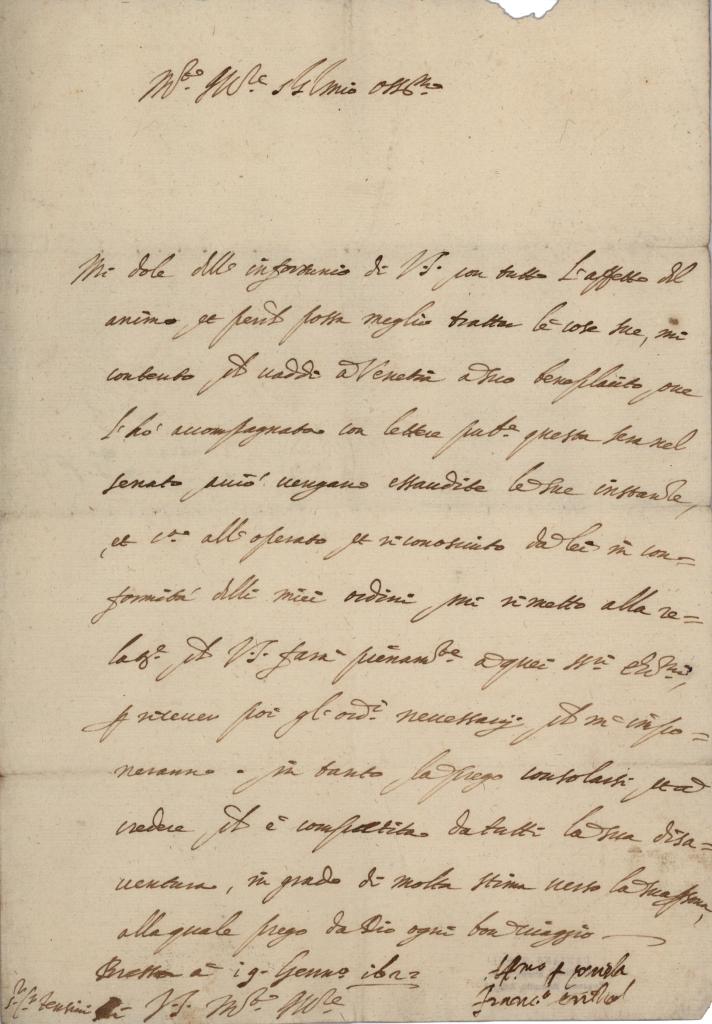 Mto. Illre. sr. mio ossmo.
Mi dole dell' infortunio di V.S. con tutto l'affetto del
animo et perch possa meglio trattar le cose sue, mi
contento ch vaddi à Venetia à suo beneplacito, ove
l'hò accompagnato con lettere pube. questa sera nel
senato acciò vengano essaudite le sue instanze,
et ca. all' operato et riconosciuto da lei in con=
formità delli miei ordini mi rimetto alla re=
latne. ch V.S. farà pienamte. à quei ssri. Eccmi.,
p ricever poi gli ordi. necessarij ch m' impo=
neranno. in tanto la prego consolarsi, et à
credere ch è compatita da tutti la sua disa=
ventura, in grado di molta stima verso la sua psona,
alla quale prego da Dio ogni bon viaggio
à 19. Genno. 
sr. Tensini Di V.S. Mto. Illre.